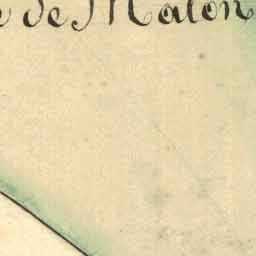 de Malon